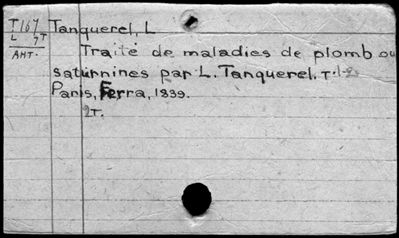 T167 Tanquerel, L
L 7T
ANT. Traité de maladies de plomb ou
saturnines par L. Tanquerel, T. 1-2
Paris, Ferra, 1839.
2T.